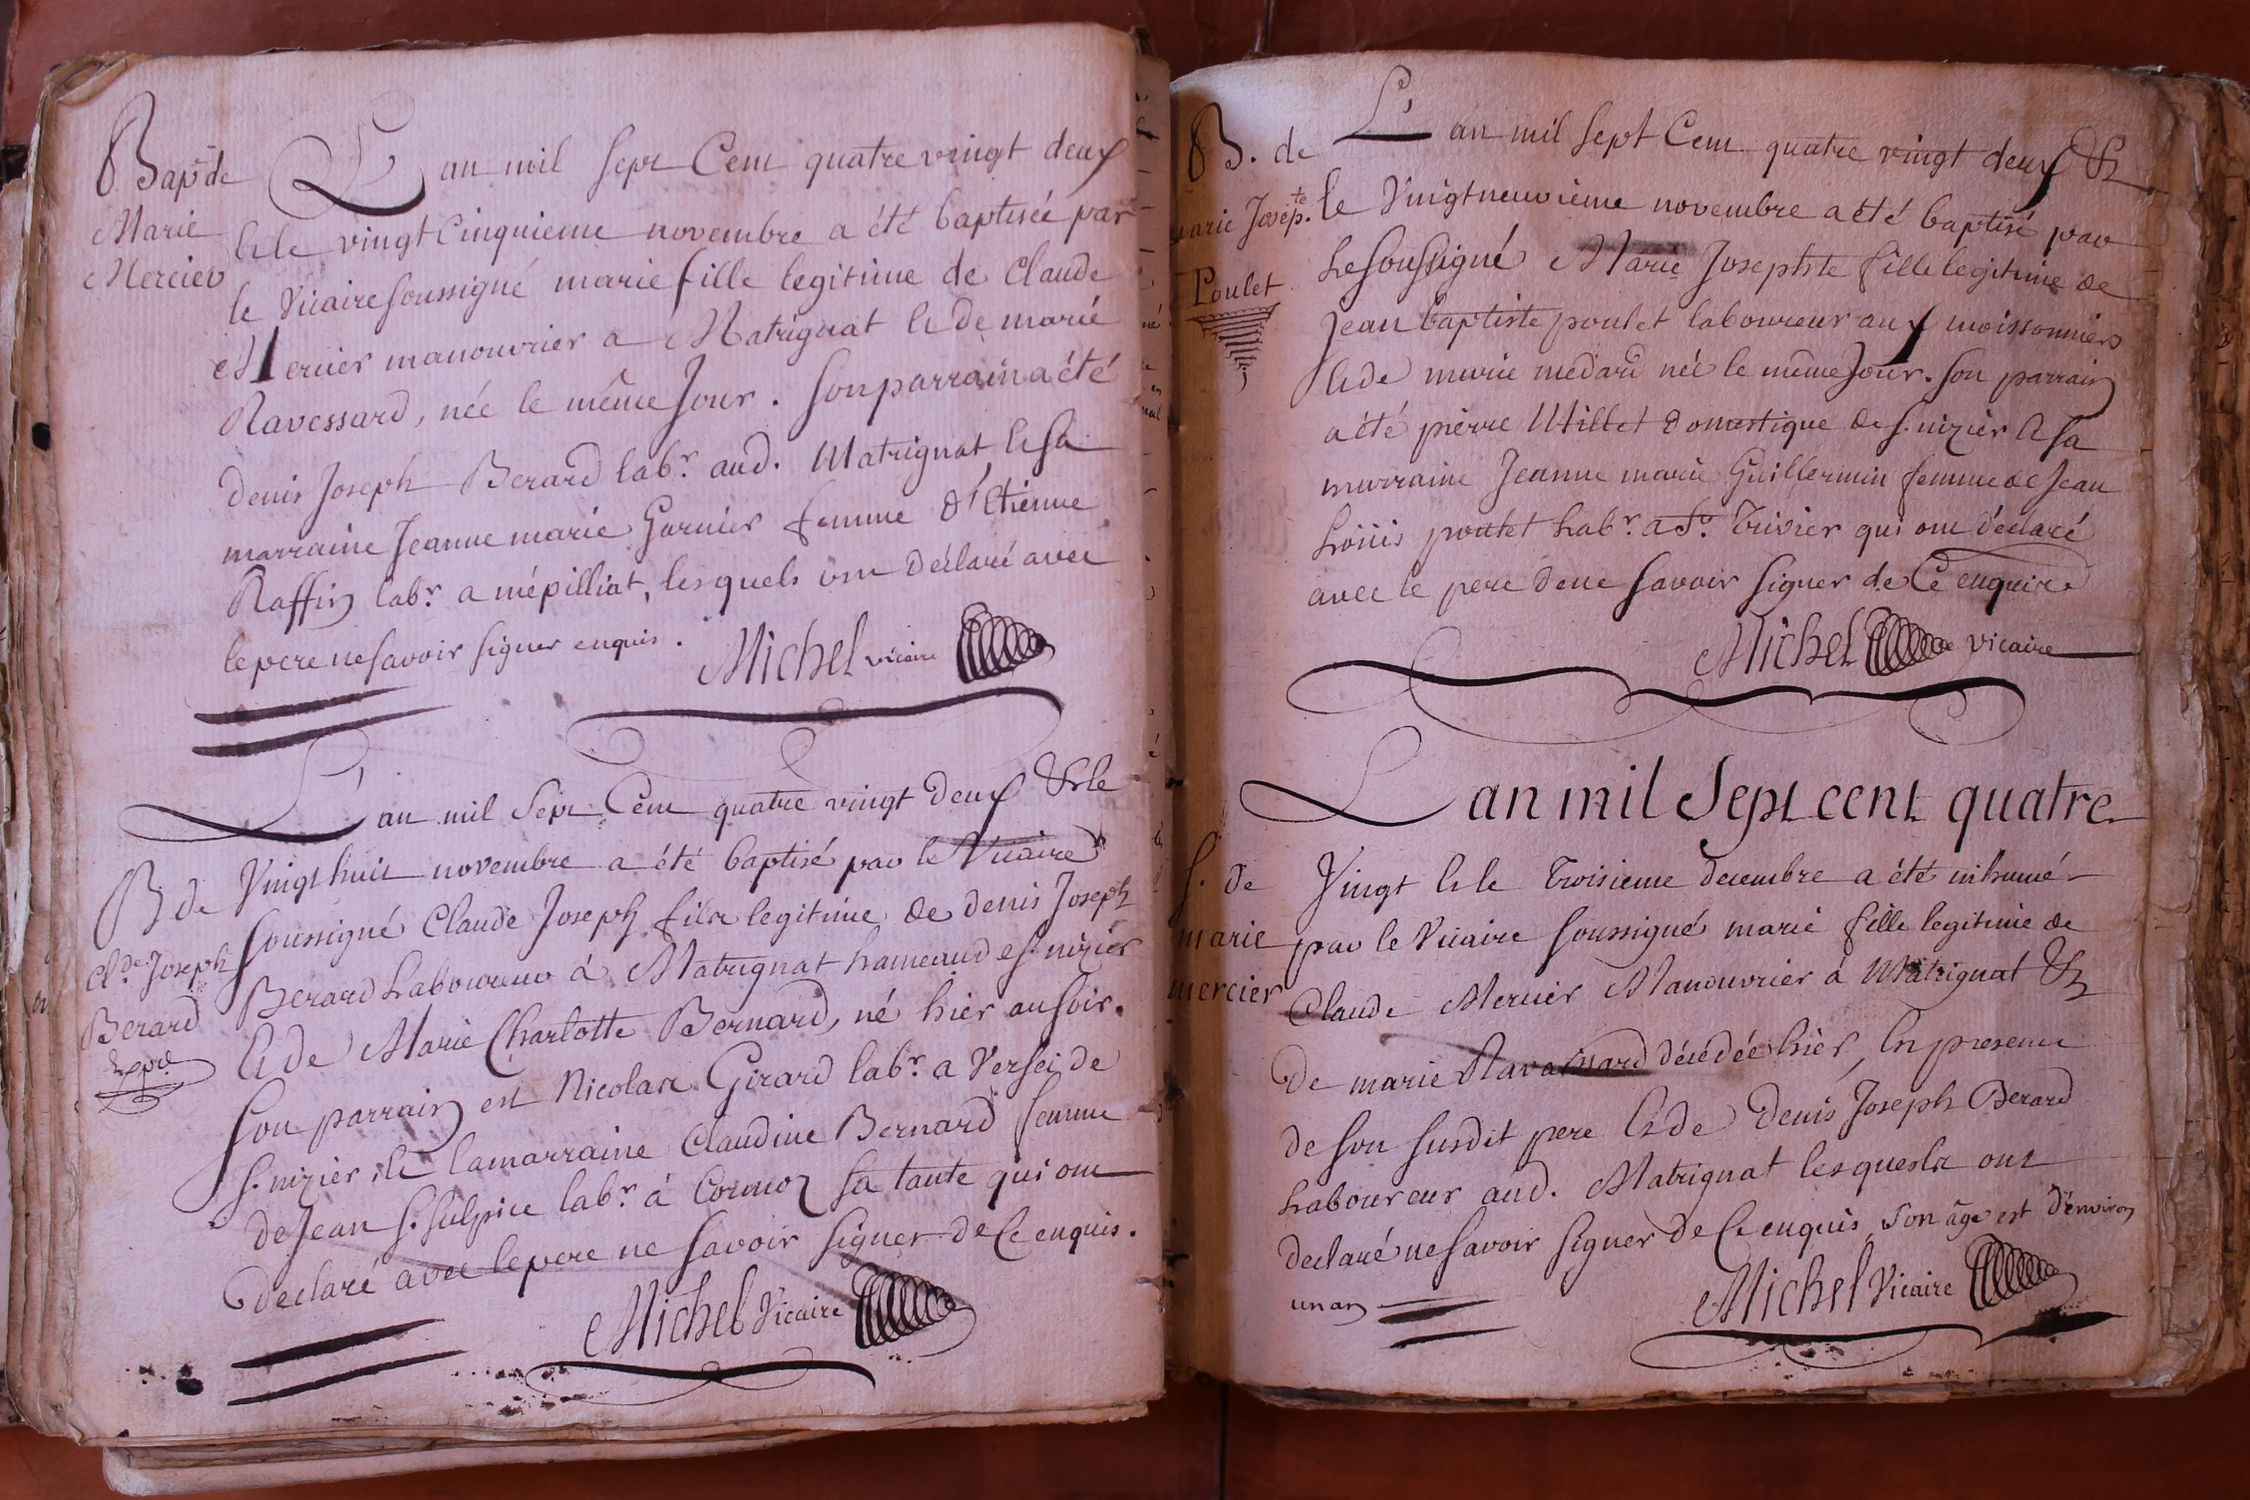 Bapt de
Marie
Mercier
L'an mil sept Cent quatre vingt deux
& le vingt Cinquieme novembre a été baptisée par
le Vicaire soussigné marie fille legitime de Claude
Mercier manouvrier a Matrignat & de marie
Ravessard, née le même Jour. Son parrain a été
denis Joseph Berard labr. aud. Matrignat, & sa
marraine Jeanne marie Garnier femme d'Etienne
Raffin labr. a mépilliat, lesquels ont déclaré avec
le pere ne savoir signer enquis.
Michel vicaire
B de
Cl.de Joseph
Berard
L'an mil sept Cent quatre vingt deux & le
Vingt huit novembre a été baptisé par le Vicaire
soussigné Claude Joseph fils legitime de denis Joseph
Berard Laboureur à Matrignat hameau de st. nizier
& de Marie Charlotte Bernard, né hier au soir.
son parrain est Nicolas Girard labr. a Versei de
st. nizier & la marraine Claudine Bernard femme
de Jean st. Sulpice labr. à Cormoz sa tante qui ont
déclaré avec le pere ne savoir signer de Ce enquis.
Michel Vicaire
B. de
marie Josep.te
Poulet
L'an mil sept Cent quatre vingt deux &
le Vingt neuvieme novembre a été baptisé par
Le soussigné Marie Josephte fille legitime de
Jean baptiste poulet laboureur aux moissonniers
& de marie medard née le même Jour. son parrain
a été pierre Millet domestique de st. nizier & sa
marraine Jeanne marie Guillermin femme de Jean
Loüis poulet Labr. a St. Trivier qui ont déclaré
avec le pere de ne savoir signer de Ce enquis
Michel vicaire
S. de
marie
mercier
L'an mil Sept cent quatre
Vingt & le Troisieme decembre a été inhumé
par le Vicaire soussigné marie fille legitime de
Claude Mercier Manouvrier à Matrignat &
de marie Ravassard décédée hier, En presence
de son susdit pere & de Denis Joseph Berard
Laboureur aud. Matrignat lesquels ont
declaré ne savoir signer de Ce enquis, son âge est d'environ
un an
Michel Vicaire